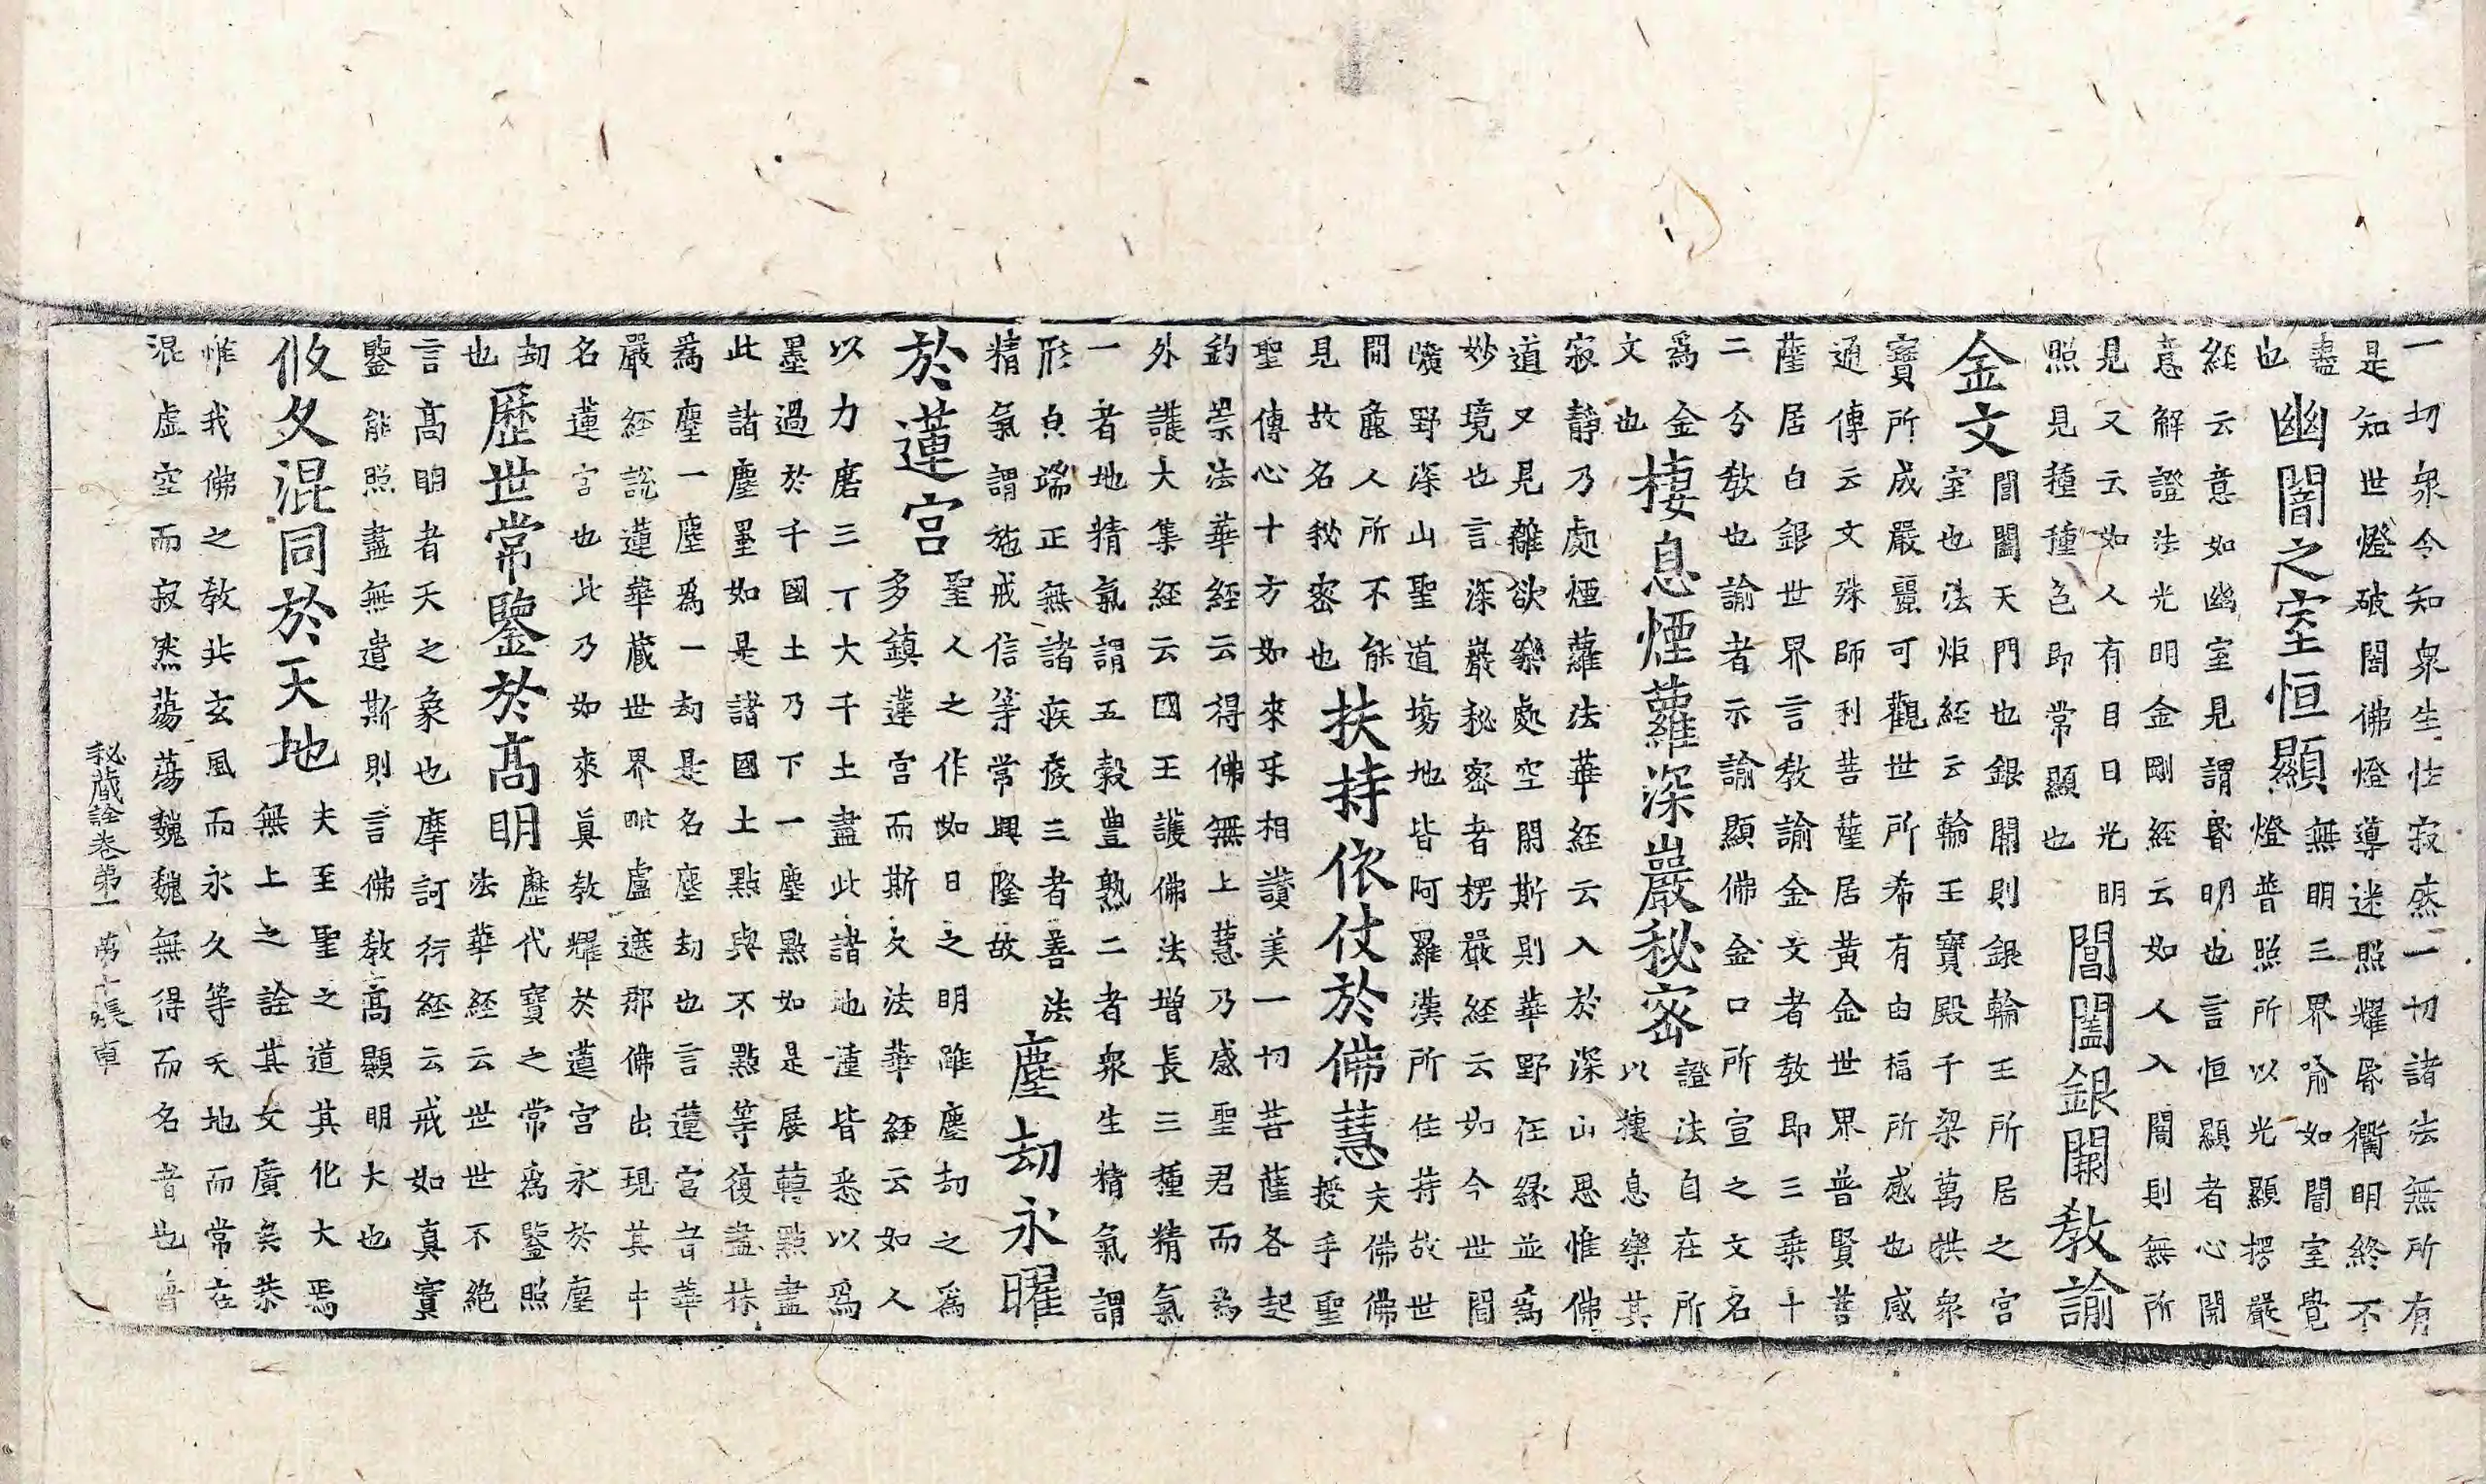 一切衆令知衆生性寂然一切諸法無所有
是知世燈破闇佛燈導迷照耀昏衢明終不
盡
也
幽闇之室恒顯
無明三界喻如闇室覺
燈普照所以光顯楞嚴
經云意如幽室見謂昏明也言恒顯者心開
意解證法光明金剛經云如人入闇則無所
見又云如人有目日光明
照見種種色即常顯也
閶闔銀關教諭
金文
閶闔天門也銀關則銀輪王所居之宮
室也法炬經云輪王寶殿千梁萬栱衆
寶所成嚴麗可觀世所希有由福所感也感
通傳云文殊師利菩薩居黃金世界普賢菩
薩居白銀世界言教諭金文者教即三乘十
二分教也諭者示諭顯佛金口所宣之文名
爲金
文也
棲息煙蘿深巖秘密
證法自在所
以棲息樂其
寂靜乃處煙蘿法華經云入於深山思惟佛
道又見離欲樂處空閑斯則華野任緣並爲
妙境也言深巖秘密者楞嚴經云如今世間
曠野深山聖道塲地皆阿羅漢所住持故世
間麁人所不能
見故名秘密也
扶持依仗於佛慧
夫佛佛
授手聖
聖傳心十方如來乎相讚美一切菩薩各起
釣崇法華經云得佛無上慧乃感聖君而爲
外護大集經云國王護佛法增長三種精氣
一者地精氣謂五穀豊熟二者衆生精氣謂
形皃端正無諸疾疫三者善法
精氣謂施戒信等常興隆故
塵劫永曜
於蓮宮
聖人之作如日之明雖塵劫之爲
多鎮蓮宮而斯久法華經云如人
以力磨三丁大千土盡此諸地種皆悉以爲
墨過於千國土乃下一塵點如是展轉點盡
此諸塵墨如是諸國土點與不點等復盡抹
爲塵一塵爲一劫是名塵劫也言蓮宮者華
嚴經說蓮華藏世界毗盧遮那佛出現其中
名蓮宮也此乃如來眞教耀於蓮宮永於塵
劫
也
歷世常鑒於高明
歷代寶之常爲鑒照
法華經云世世不絕
言高明者天之象也摩訶衍經云戒如真實
鑒能照盡無遺斯則言佛教高顯明大也
攸久混同於天地
夫至聖之道其化大焉
無上之詮其文廣矣恭
惟我佛之教共玄風而永久等天地而常在
混虛空而寂然蕩蕩巍巍無得而名者也
秘藏詮卷第一 第十張 車